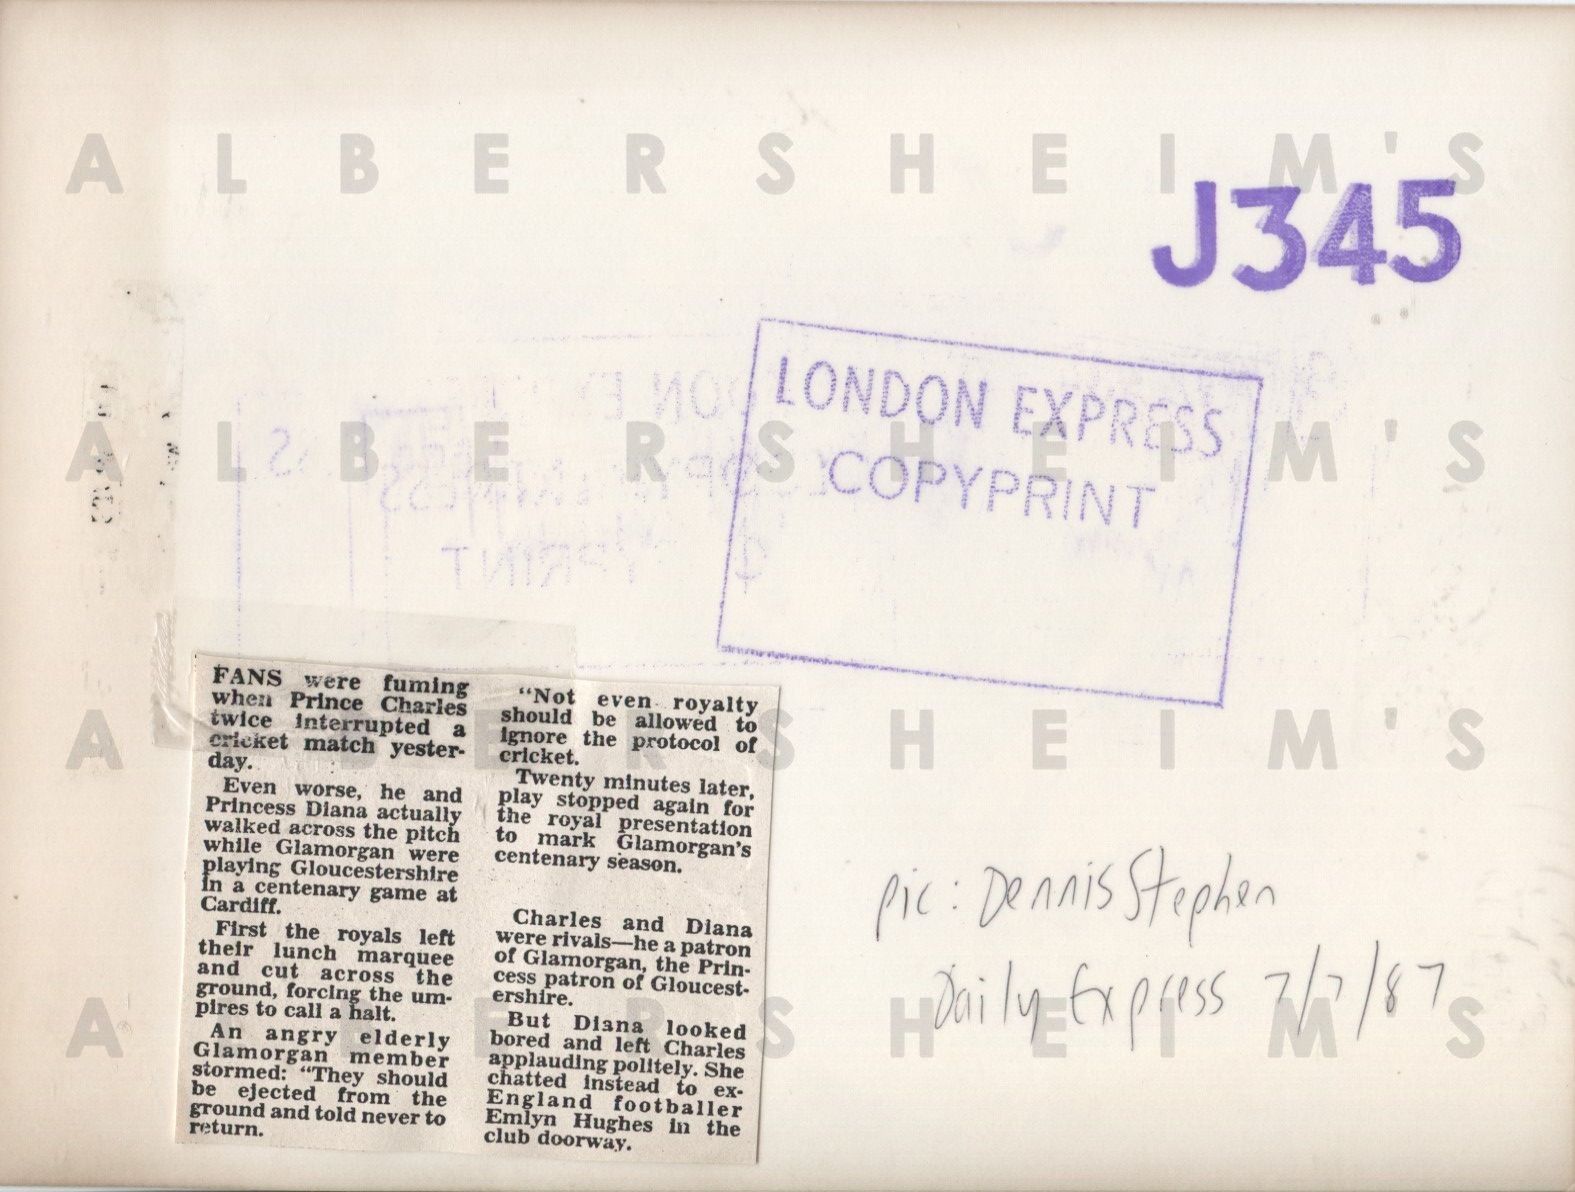 ALBERSHEIM'S
J345
LONDON EXPRESS
COPYPRINT
ALBERSHEIM'S
FANS were fuming
when Prince Charles
twice interrupted a
cricket match yester-
day.
Even worse, he and
Princess Diana actually
walked across the pitch
while Glamorgan were
playing Gloucestershire
in a centenary game at
Cardiff.
First the royals left
their lunch marquee
and cut across the
ground, forcing the um-
pires to call a halt.
An angry elderly
Glamorgan member
stormed: "They should
be ejected from the
ground and told never to
return.
"Not even royalty
should be allowed to
ignore the protocol of
cricket.
Twenty minutes later,
play stopped again for
the royal presentation
to mark Glamorgan's
centenary season.
Charles and Diana
were rivals—he a patron
of Glamorgan, the Prin-
cess patron of Gloucest-
ershire.
But Diana looked
bored and left Charles
applauding politely. She
chatted instead to ex-
England footballer
Emlyn Hughes in the
club doorway.
ALBERSHEIM'S
pic: Dennis Stephen
Daily Express 7/7/87
ALBERSHEIM'S